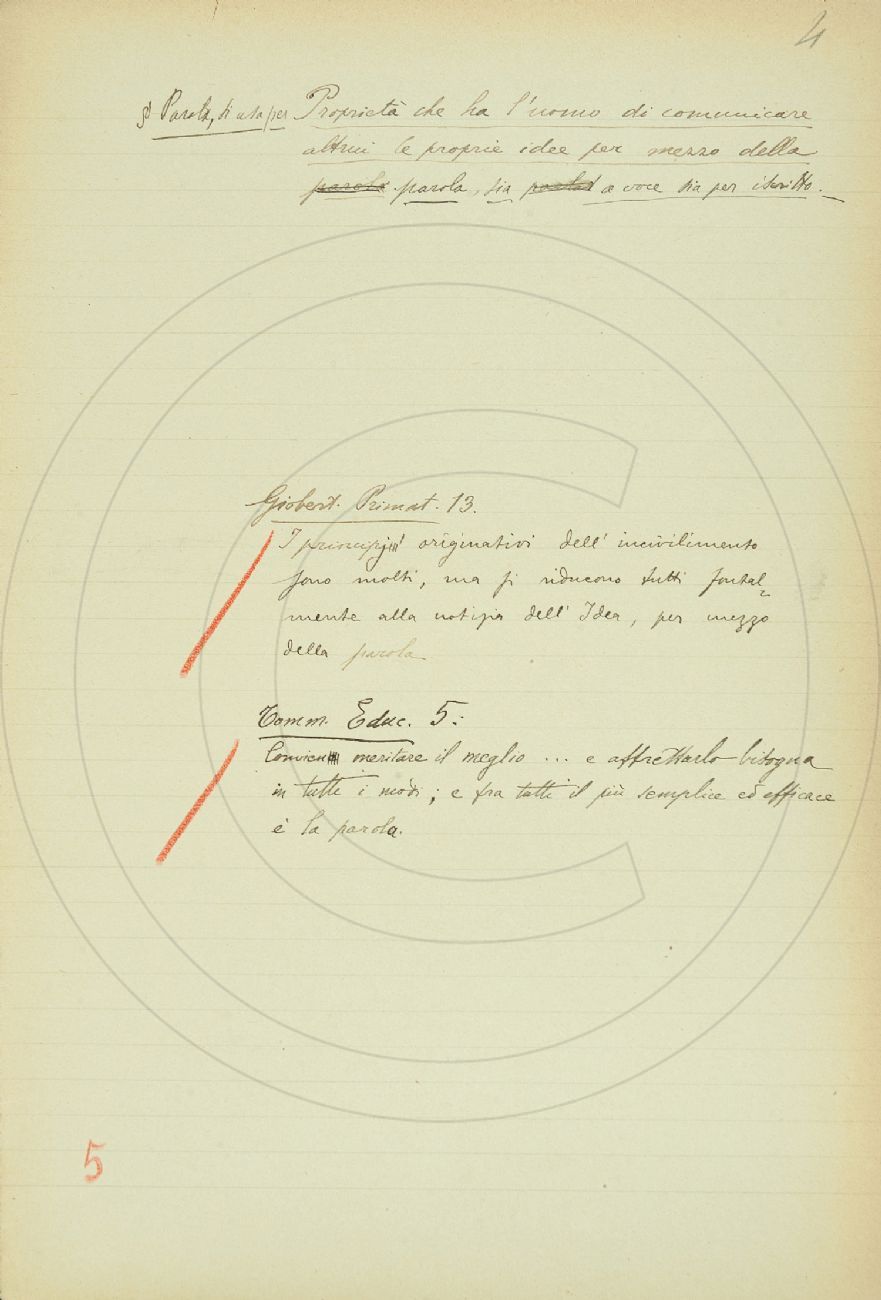 4
§ Parola, si usa per Proprietà che ha l'uomo di comunicare
altrui le proprie idee per mezzo della
parola parola, sia a voce sia per iscritto.
Giobert. Primat. 13.
I principj originativi dell' incivilimento
sono molti, ma si riducono tutti fontal-
mente alla notizia dell' Idea, per mezzo
della parola
Tomm. Educ. 5:
Convien meritare il meglio ... e affrettarlo bisogna
in tutti i modi; e fra tutti il più semplice ed efficace
è la parola.
5